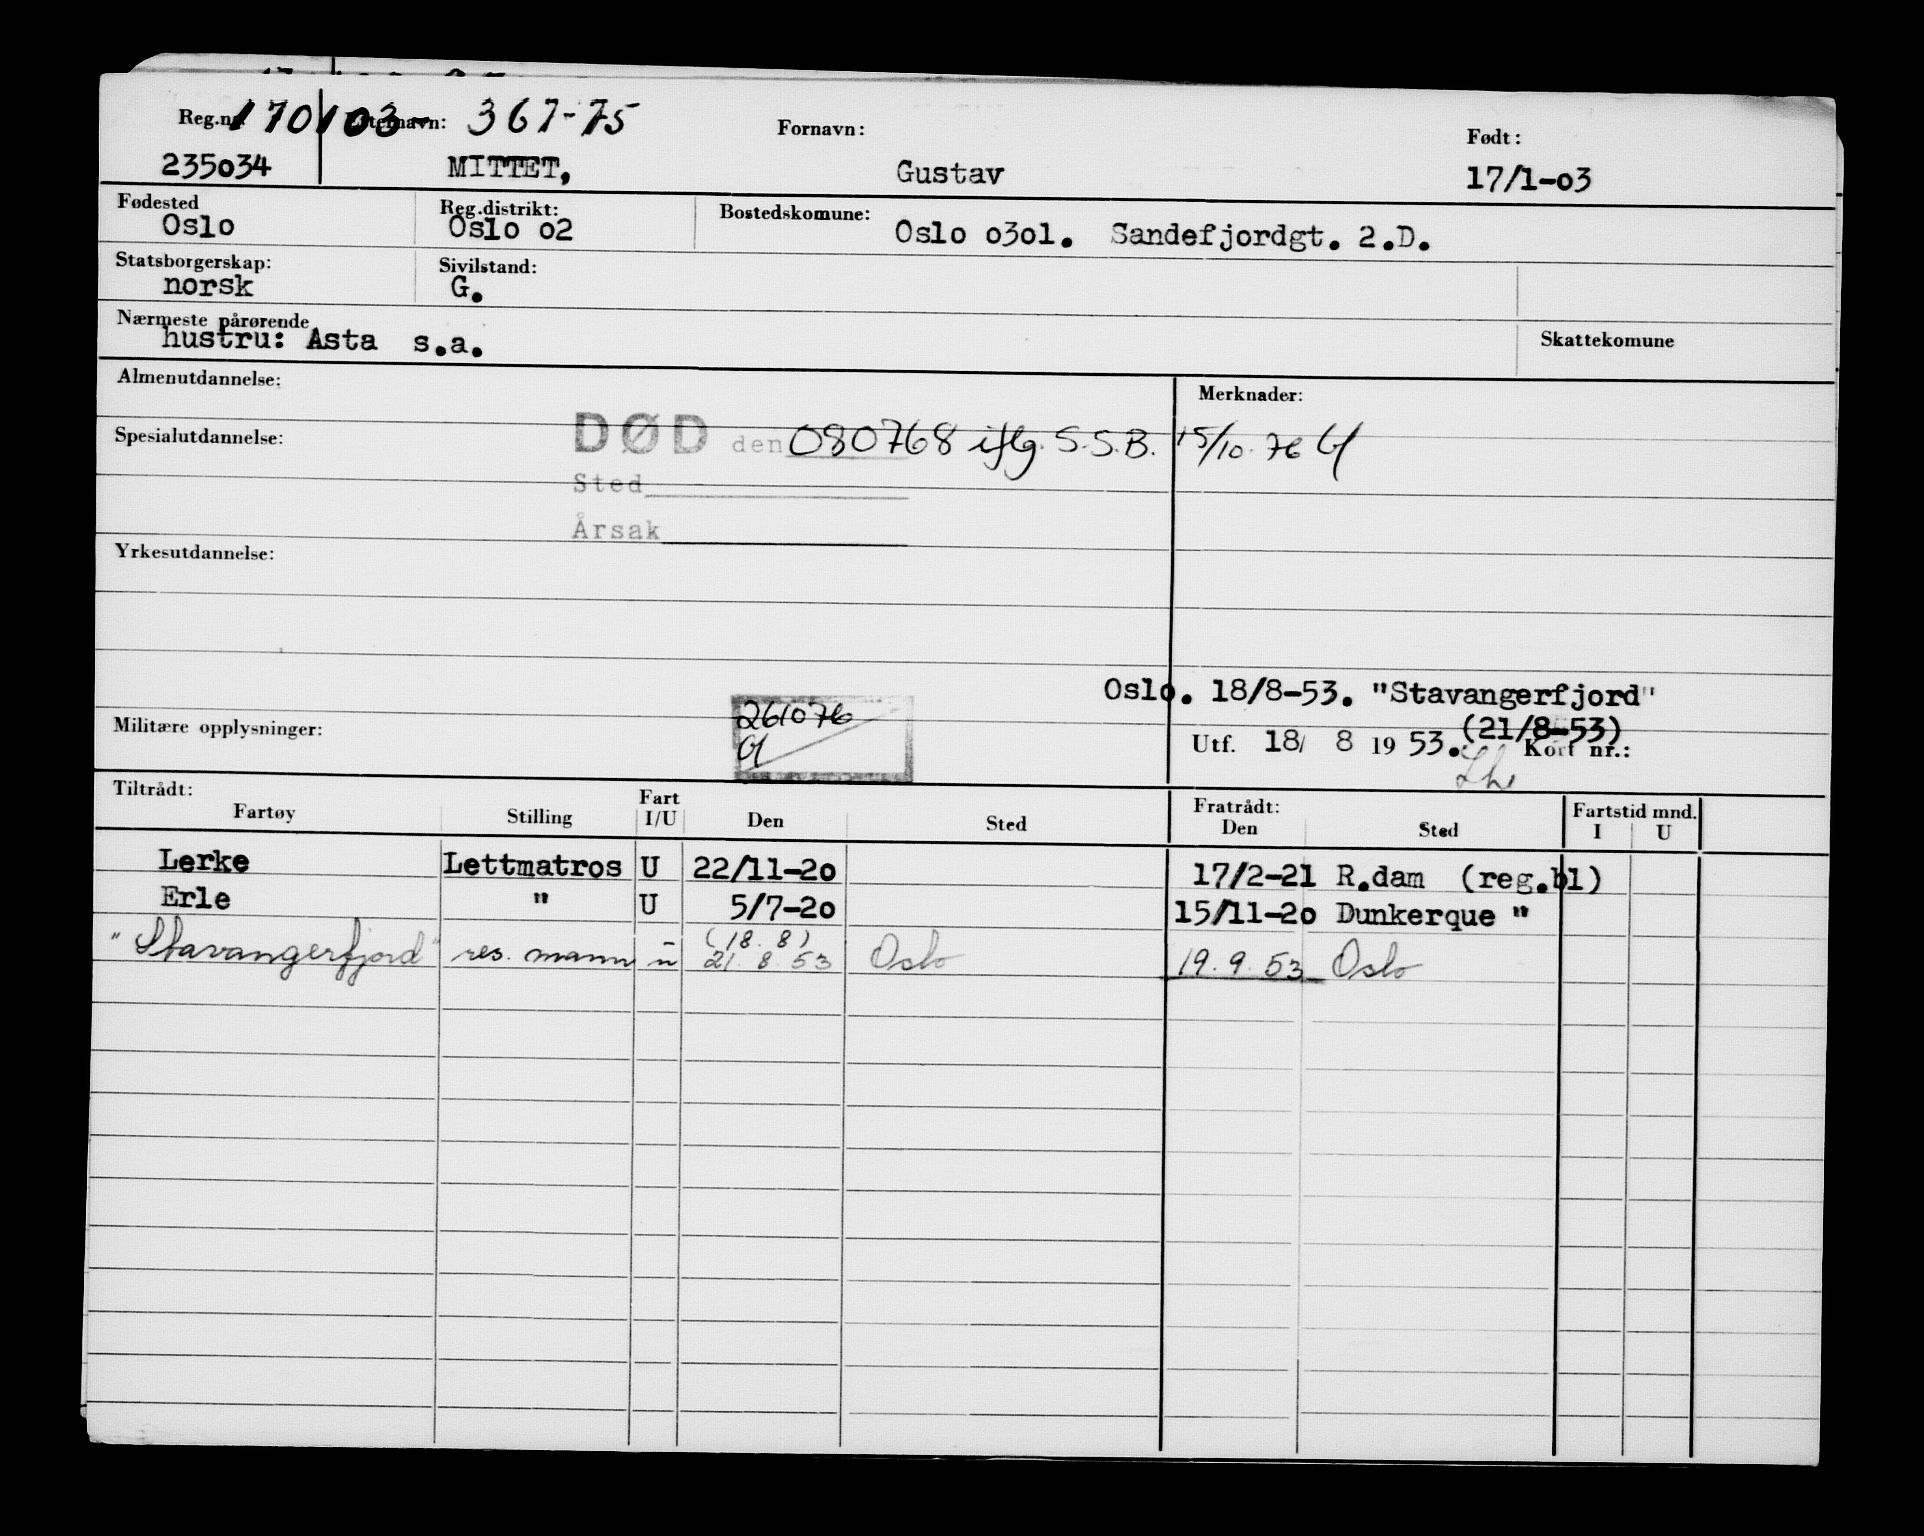 170103- 367-75
Reg.nr. Etternavn: Fornavn: Født:
235034 MITTET, Gustav 17/1-03
Fødested Reg.distrikt: Bostedskomune:
Oslo Oslo o2 Oslo o3o1. Sandefjordgt. 2.D.
Statsborgerskap: Sivilstand:
norsk G.
Nærmeste pårørende Skattekomune
hustru: Asta s.a.
Almenutdannelse: Merknader:
Spesialutdannelse: DØD den 080768 iflg. S.S.B. 15/10.76
Sted
Årsak
Yrkesutdannelse:
Oslo. 18/8-53. "Stavangerfjord"
261076 (21/8-53)
Militære opplysninger: Utf. 18/ 8 19 53. Kort nr.:
Tiltrådt: Fart Fratrådt: Fartstid mnd.
Fartøy Stilling I/U Den Sted Den Sted I U
Lerke Lettmatros U 22/11-20 17/2-21 R.dam (reg.bl)
Erle " U 5/7-20 15/11-20 Dunkerque "
(18. 8)
"Stavangerfjord" res. mann u 21. 8. 53 Oslo 19. 9. 53 Oslo